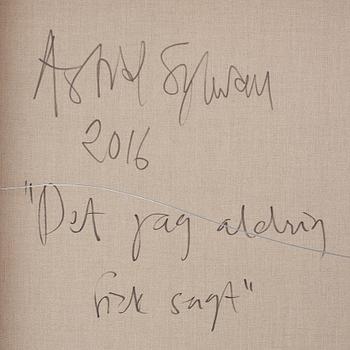 Astrid Sylwan
2016
"Det jag aldrig
fick sagt"